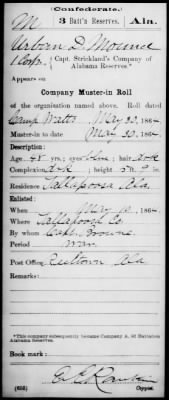 (Confederate.)
M 3 Batt'n Reserves. Ala.
Urban D. Mounce
1 Corp., Capt. Strickland's Company of
Alabama Reserves.*
Appears on
Company Muster-in Roll
of the organization named above. Roll dated
Camp Watts May 30, 1864.
Muster-in to date May 30, 1864.
Description:
Age 45 yrs.; eyes blue; hair dark
Complexion dark; height 5 ft. 9 in.
Residence Tallapoosa Ala.
Enlisted:
When May 10, 1864.
Where Tallapoosa Co
By whom Capt. Browne
Period war
Post Office: Ala
Remarks:
*This company subsequently became Company A, 62 Battalion
Alabama Reserves.
Book mark:
(635) Copyist.